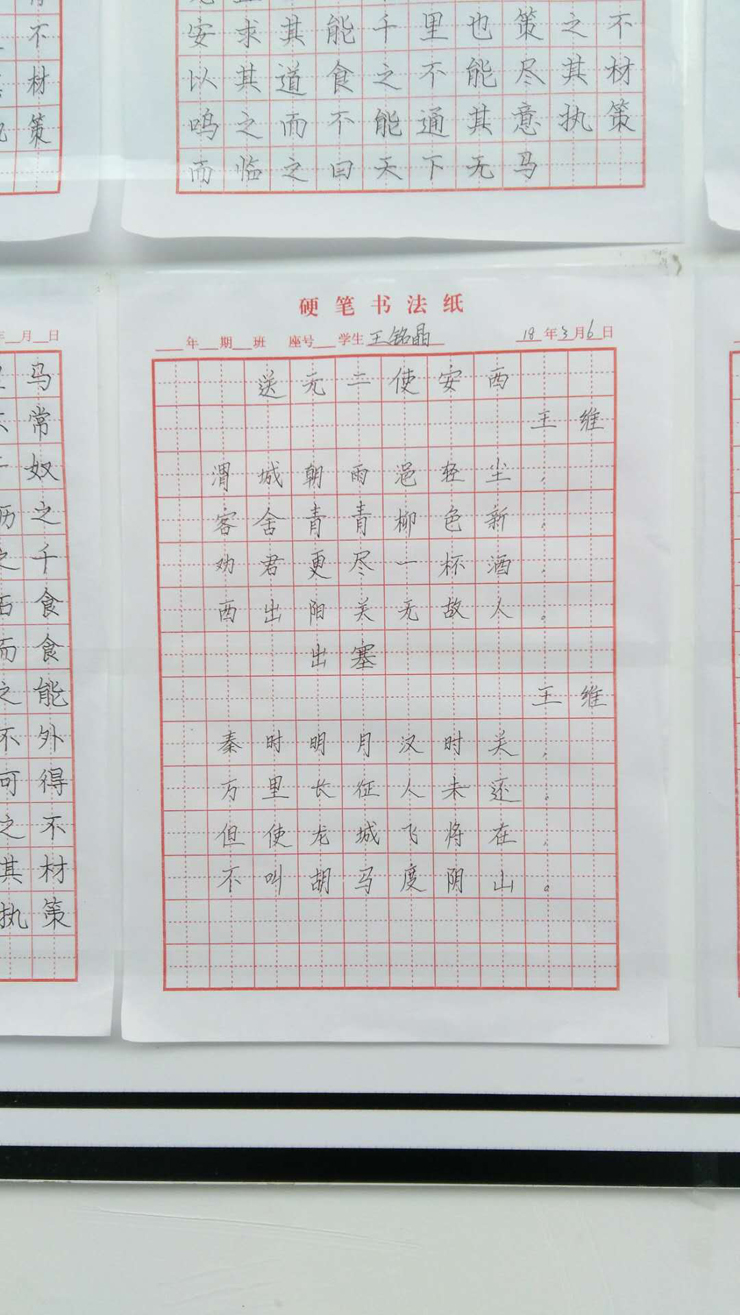 安求其能千里也策之不
以其道食之不能尽其材
鸣之而不能通其意执策
而临之曰天下无马
不
材
策
硬笔书法纸
年 期 班 座号 学生 王铭晶 18年3月6日
送元二使安西
王维
渭城朝雨浥轻尘，
客舍青青柳色新。
劝君更尽一杯酒，
西出阳关无故人。
出塞
王维
秦时明月汉时关，
万里长征人未还。
但使龙城飞将在，
不叫胡马度阴山。
年 月 日
马
常
奴
之
千
食
而食
之能
不外
可得
之不
其材
执策